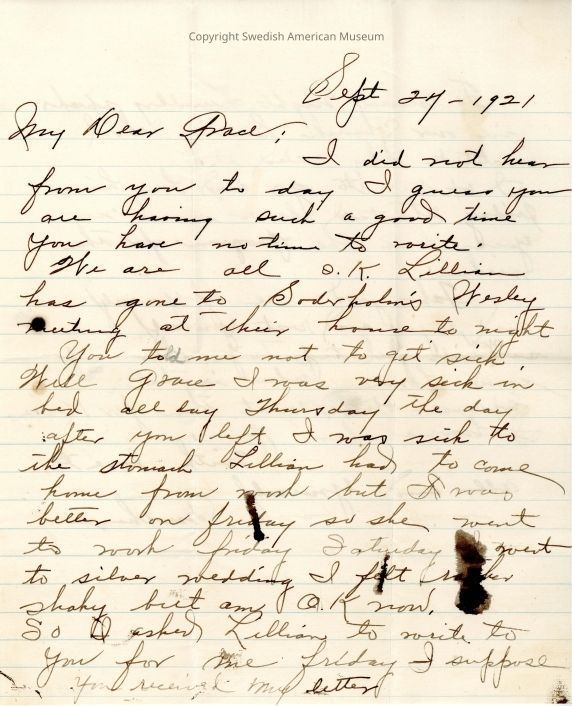 Copyright Swedish American Museum
Sept 24 - 1921
My Dear Grace;
I did not hear
from you to day I guess you
are having such a good time
you have no time to write.
We are all O.K. Lillian
has gone to Soderholm's Wesley
meeting at their house to night
You told me not to get sick
Well Grace I was very sick in
bed all day Thursday the day
after you left I was sick to
the stomach Lillian had to come
home from work but I was
better on friday so she went
to work friday Saturday I went
to silver wedding I felt rather
shaky but am O.K now.
So I asked Lillian to write to
you for me friday I suppose
you received my letter